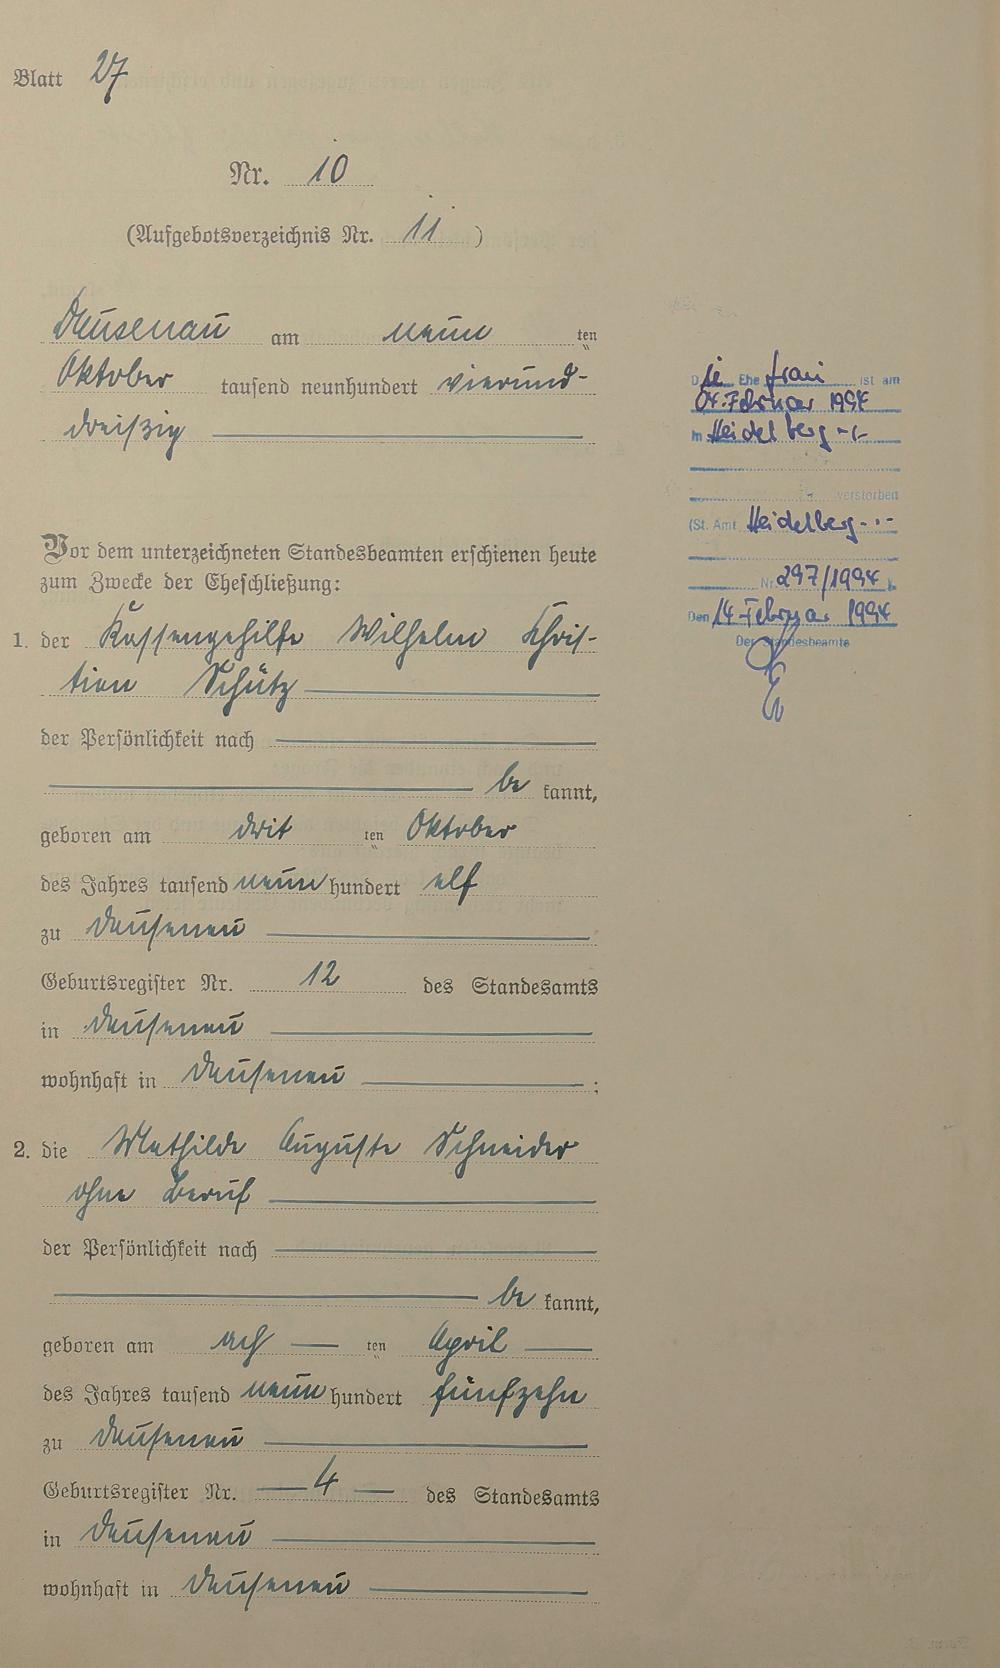 Blatt 27
Nr. 10
(Aufgebotsverzeichnis Nr. 11)
Dausenau am neun ten
Oktober tausend neunhundert vierund-
dreißig
Vor dem unterzeichneten Standesbeamten erschienen heute
zum Zwecke der Eheschließung:
1. der Kassengehilfe Wilhelm Chris-
tian Schütz
der Persönlichkeit nach
be kannt,
geboren am drit ten Oktober
des Jahres tausend neun hundert elf
zu Dausenau
Geburtsregister Nr. 12 des Standesamts
in Dausenau
wohnhaft in Dausenau ;
2. die Mathilde Auguste Schneider
ohne Beruf
der Persönlichkeit nach
be kannt,
geboren am ach ten April
des Jahres tausend neun hundert fünfzehn
zu Dausenau
Geburtsregister Nr. 4 des Standesamts
in Dausenau
wohnhaft in Dausenau
Die Ehe frau ist am
04. Februar 1994
in Heidelberg -.-
verstorben
(St. Amt Heidelberg -.-
Nr. 297/1994 ).
Den 14. Februar 1994
Der Standesbeamte